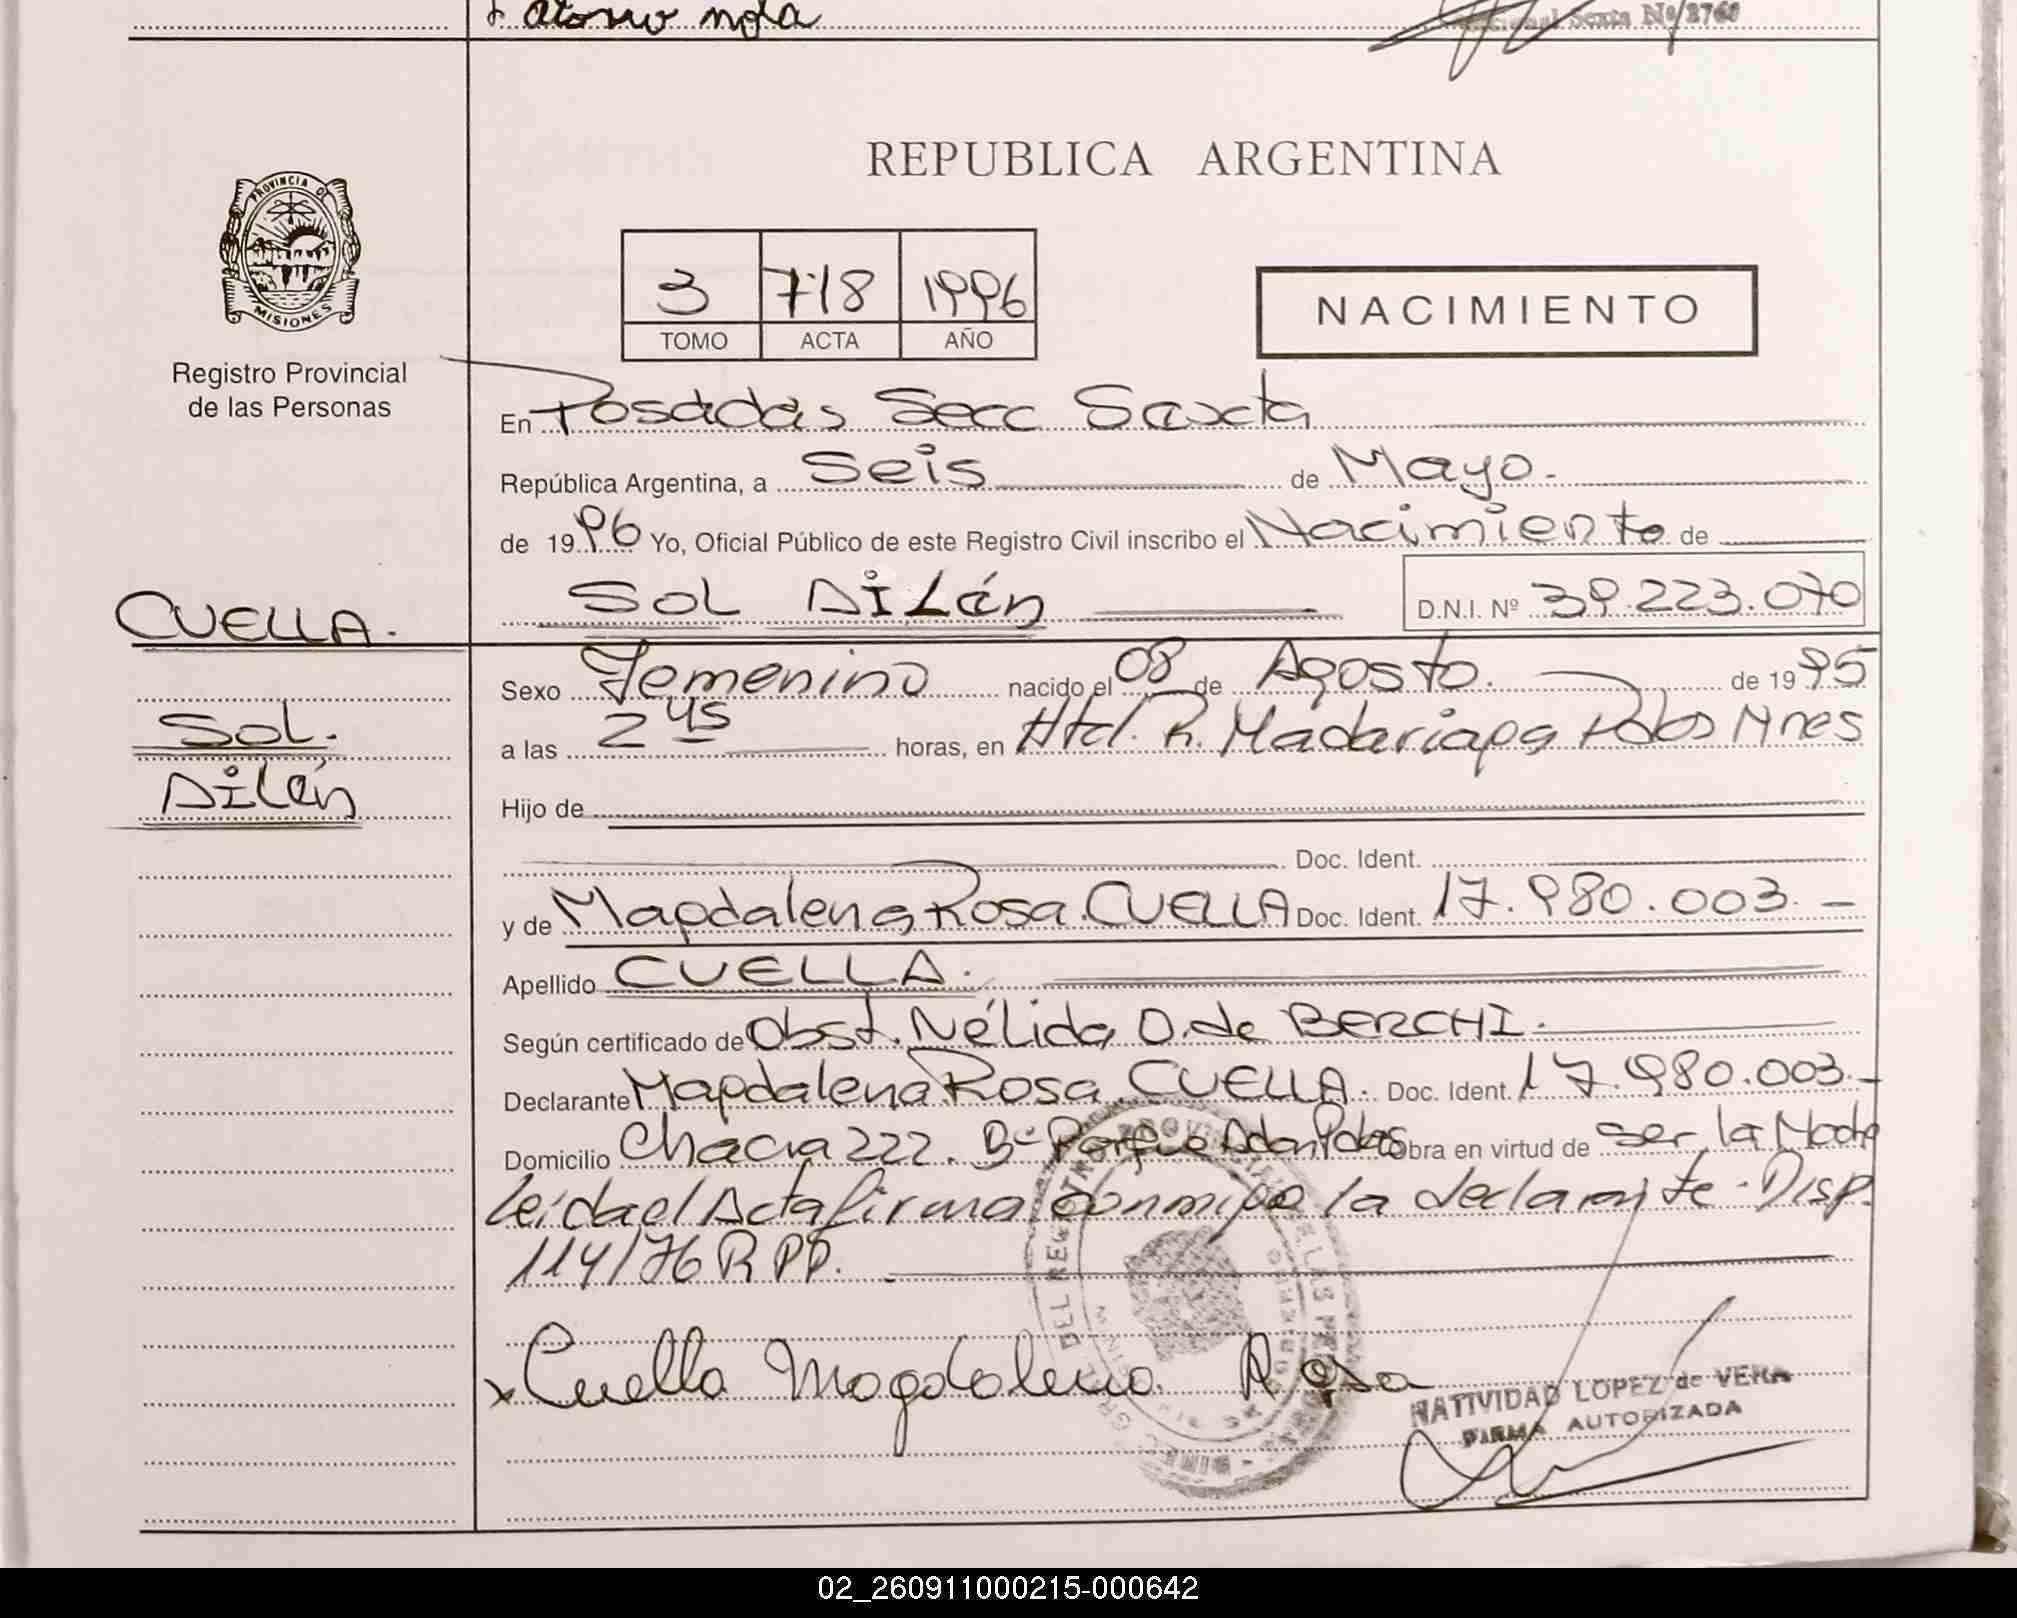 Sexta Nº 3760
PROVINCIA DE
MISIONES
Registro Provincial
de las Personas
REPUBLICA ARGENTINA
3 718 1996
TOMO ACTA AÑO
NACIMIENTO
En Posadas Secc Sexta
República Argentina, a Seis de Mayo.
de 1996 Yo, Oficial Público de este Registro Civil inscribo el Nacimiento de
SOL DiLán D.N.I. Nº 39.223.070
CUELLA.
Sol.
DiLán
Sexo Femenino nacido el 08 de Agosto. de 1995
a las 2 45 horas, en Htal. R. Madariaga Pdas Mnes
Hijo de
Doc. Ident.
y de Magdalena Rosa. CUELLA Doc. Ident. 17.980.003.-
Apellido CUELLA.
Según certificado de Obst. Nélida O. de BERCHI.
Declarante Magdalena Rosa. CUELLA. Doc. Ident. 17.980.003.-
Domicilio Chacra 222. Bº Parque Adan Pdas Obra en virtud de ser la Madre
Leída el Acta firma conmigo la declarante. Disp.
114/76 R.P.P.
x Cuella Magdalena Rosa
NATIVIDAD LOPEZ de VERA
FIRMA AUTORIZADA
02_260911000215-000642